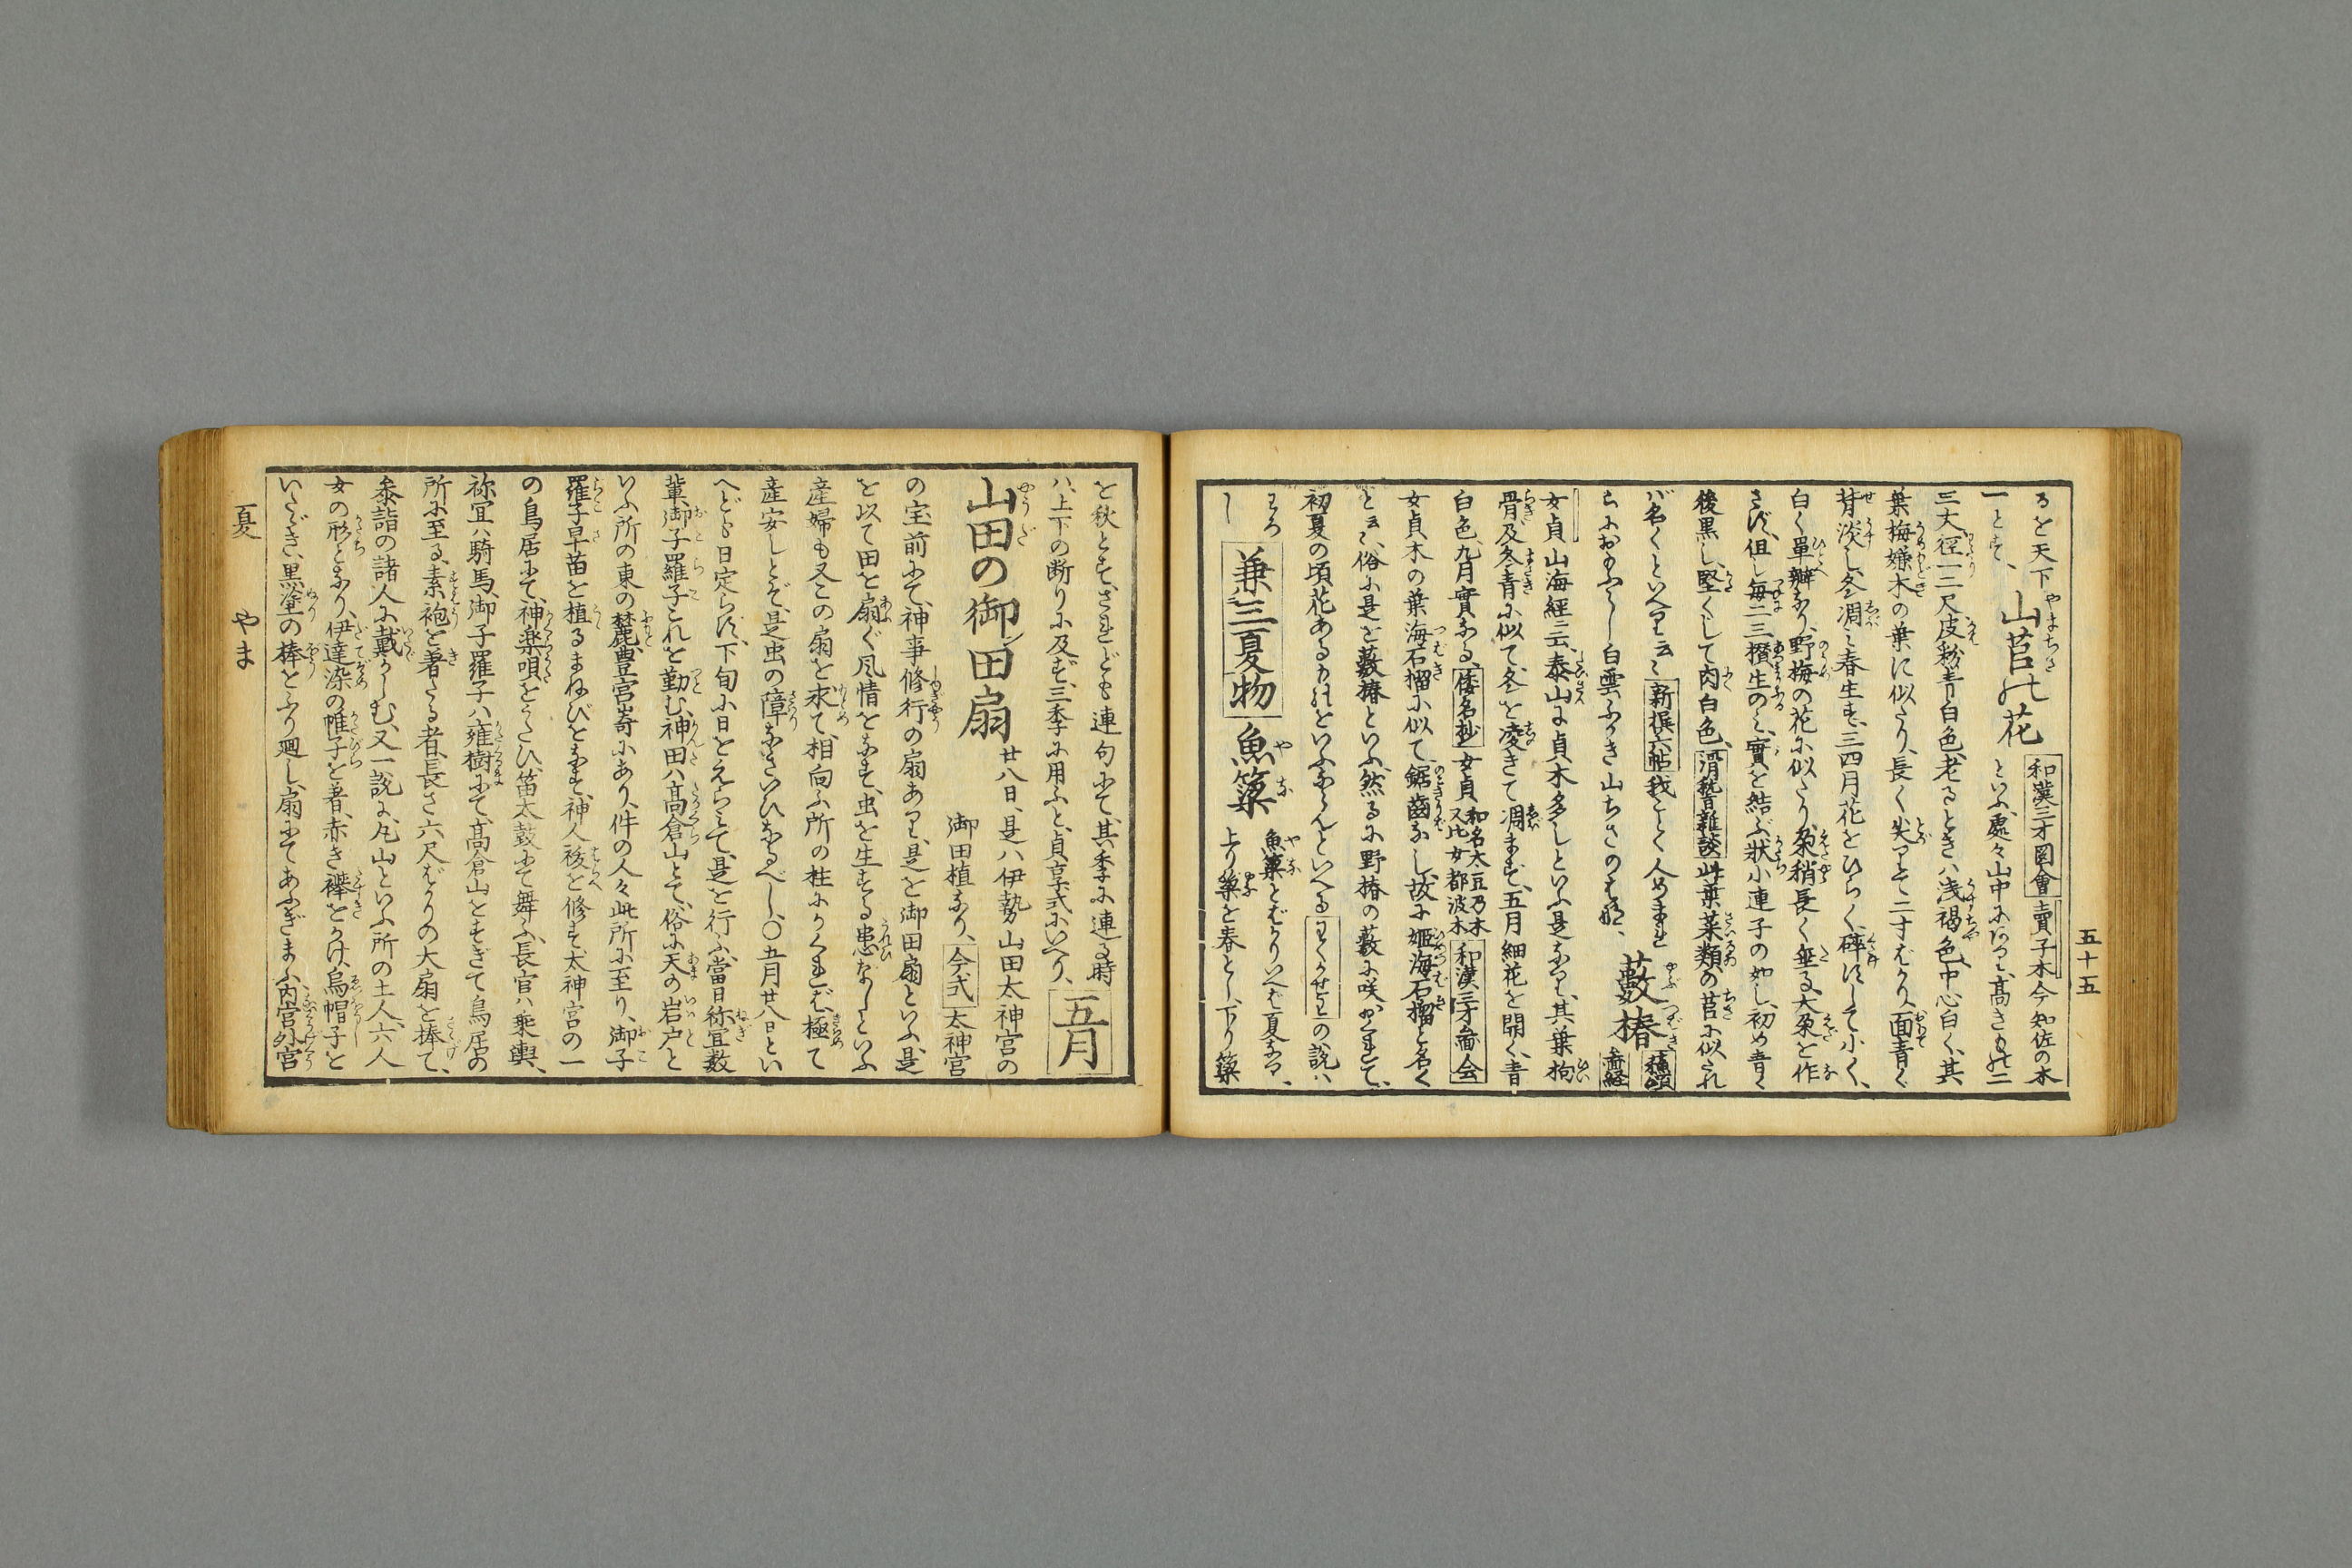 五十五
るを天下
一とす、
山苣の花
和漢三才図會 賣子木今知佐の木
といふ處々山中にあり、高きもの二
三丈徑一二尺皮粉青白色、老るときハ浅褐色、中心白く、其
葉梅嫌木の葉に似たり、長く尖りて二寸ばかり、面青く
背淡し、冬凋ミ春生ず、三四月花をひらく、碎にして小く、
白く單瓣なり、野梅の花に似たり、朶稍長く垂る、大朶を作
さず、但し毎二三攅生のミ、實を結ぶ、状小連子の如し、初め青く
後黒し、堅くして肉白色、滑稽雜談 此葉菜類の苣に似たれ
バ名くといへり云々 新撰六帖 我ごとく人めまれ
らにおもふらし白雲ふかき山ちさのはな、
藪椿
女貞 山海經云、泰山に貞木多しといふ是なり、其葉拘
骨及冬青に似て、冬を凌ぎて凋まず、五月細花を開く、青
白色、九月實なる、倭名抄 女貞 和名太豆乃木 又比女都波木 和漢三才圖会
女貞木の葉海石榴に似て、鋸齒なし、故に姫海石榴と名く
と云々、俗に是を藪椿といふ、然るに野椿の藪に咲おくれて、
初夏の頃花あるものをいふならんといへる の説ハ
わろ
し
兼三夏物
魚簗
魚簗とばかりいへば夏なり、
上り簗を春とし、下り簗
を秋とす、されども連句にて、其季に連る時
ハ、上下の断りに及ず、三季に用ふと、貞享式にいへり、 五月
山田の御田扇
廿八日、是ハ伊勢山田太神宮の
御田植なり、今式 太神宮
の宝前にて、神事修行の扇あり、是を御田扇といふ、是
を以て田を扇ぐ風情をなす、虫を生ずる患なしといふ
産婦も又この扇を求て、相向ふ所の柱にかくれば、極て
産安しとぞ、是虫の障なきいひなるべし、〇五月廿八日とい
へども日定らず、下旬に日をえらミて、是を行ふ、當日祢宜数
輩、御子羅子これを勤む、神田ハ高倉山とて、俗に天の岩戸と
いふ所の東の麓、豊宮嵜にあり、件の人々此所に至り、御子
羅子早苗を植るまねびをなす、神人祓を修す、太神宮の一
の鳥居にて、神楽唄をうたひ、笛太鼓にて舞ふ、長官ハ乗輿、
祢宜ハ騎馬、御子羅子ハ雍樹にて、高倉山をすぎて鳥居の
所に至る、素袍を著たる者、長さ六尺ばかりの大扇を捧て、
参詣の諸人に戴かしむ、又一説に、丸山といふ所の土人、六人
女の形となり、伊達染の帷子を著、赤き襷をかけ、烏帽子を
いたゞき、黒塗の棒をふり廻し、扇にてあふぎまふ、内宮外宮
夏 やま